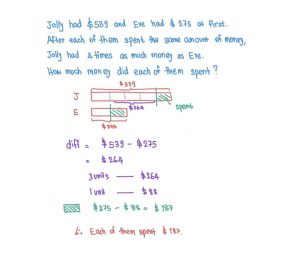 Jolly had $539 and Eve had $275 at first.
After each of them spent the same amount of money,
Jolly had 4 times as much money as Eve.
How much money did each of them spent?
$539
J
$264
spent
E
diff = $539 - $275
= $264
3 units — $264
1 unit — $88
$275 - $88 = $187
∴ Each of them spent $187.